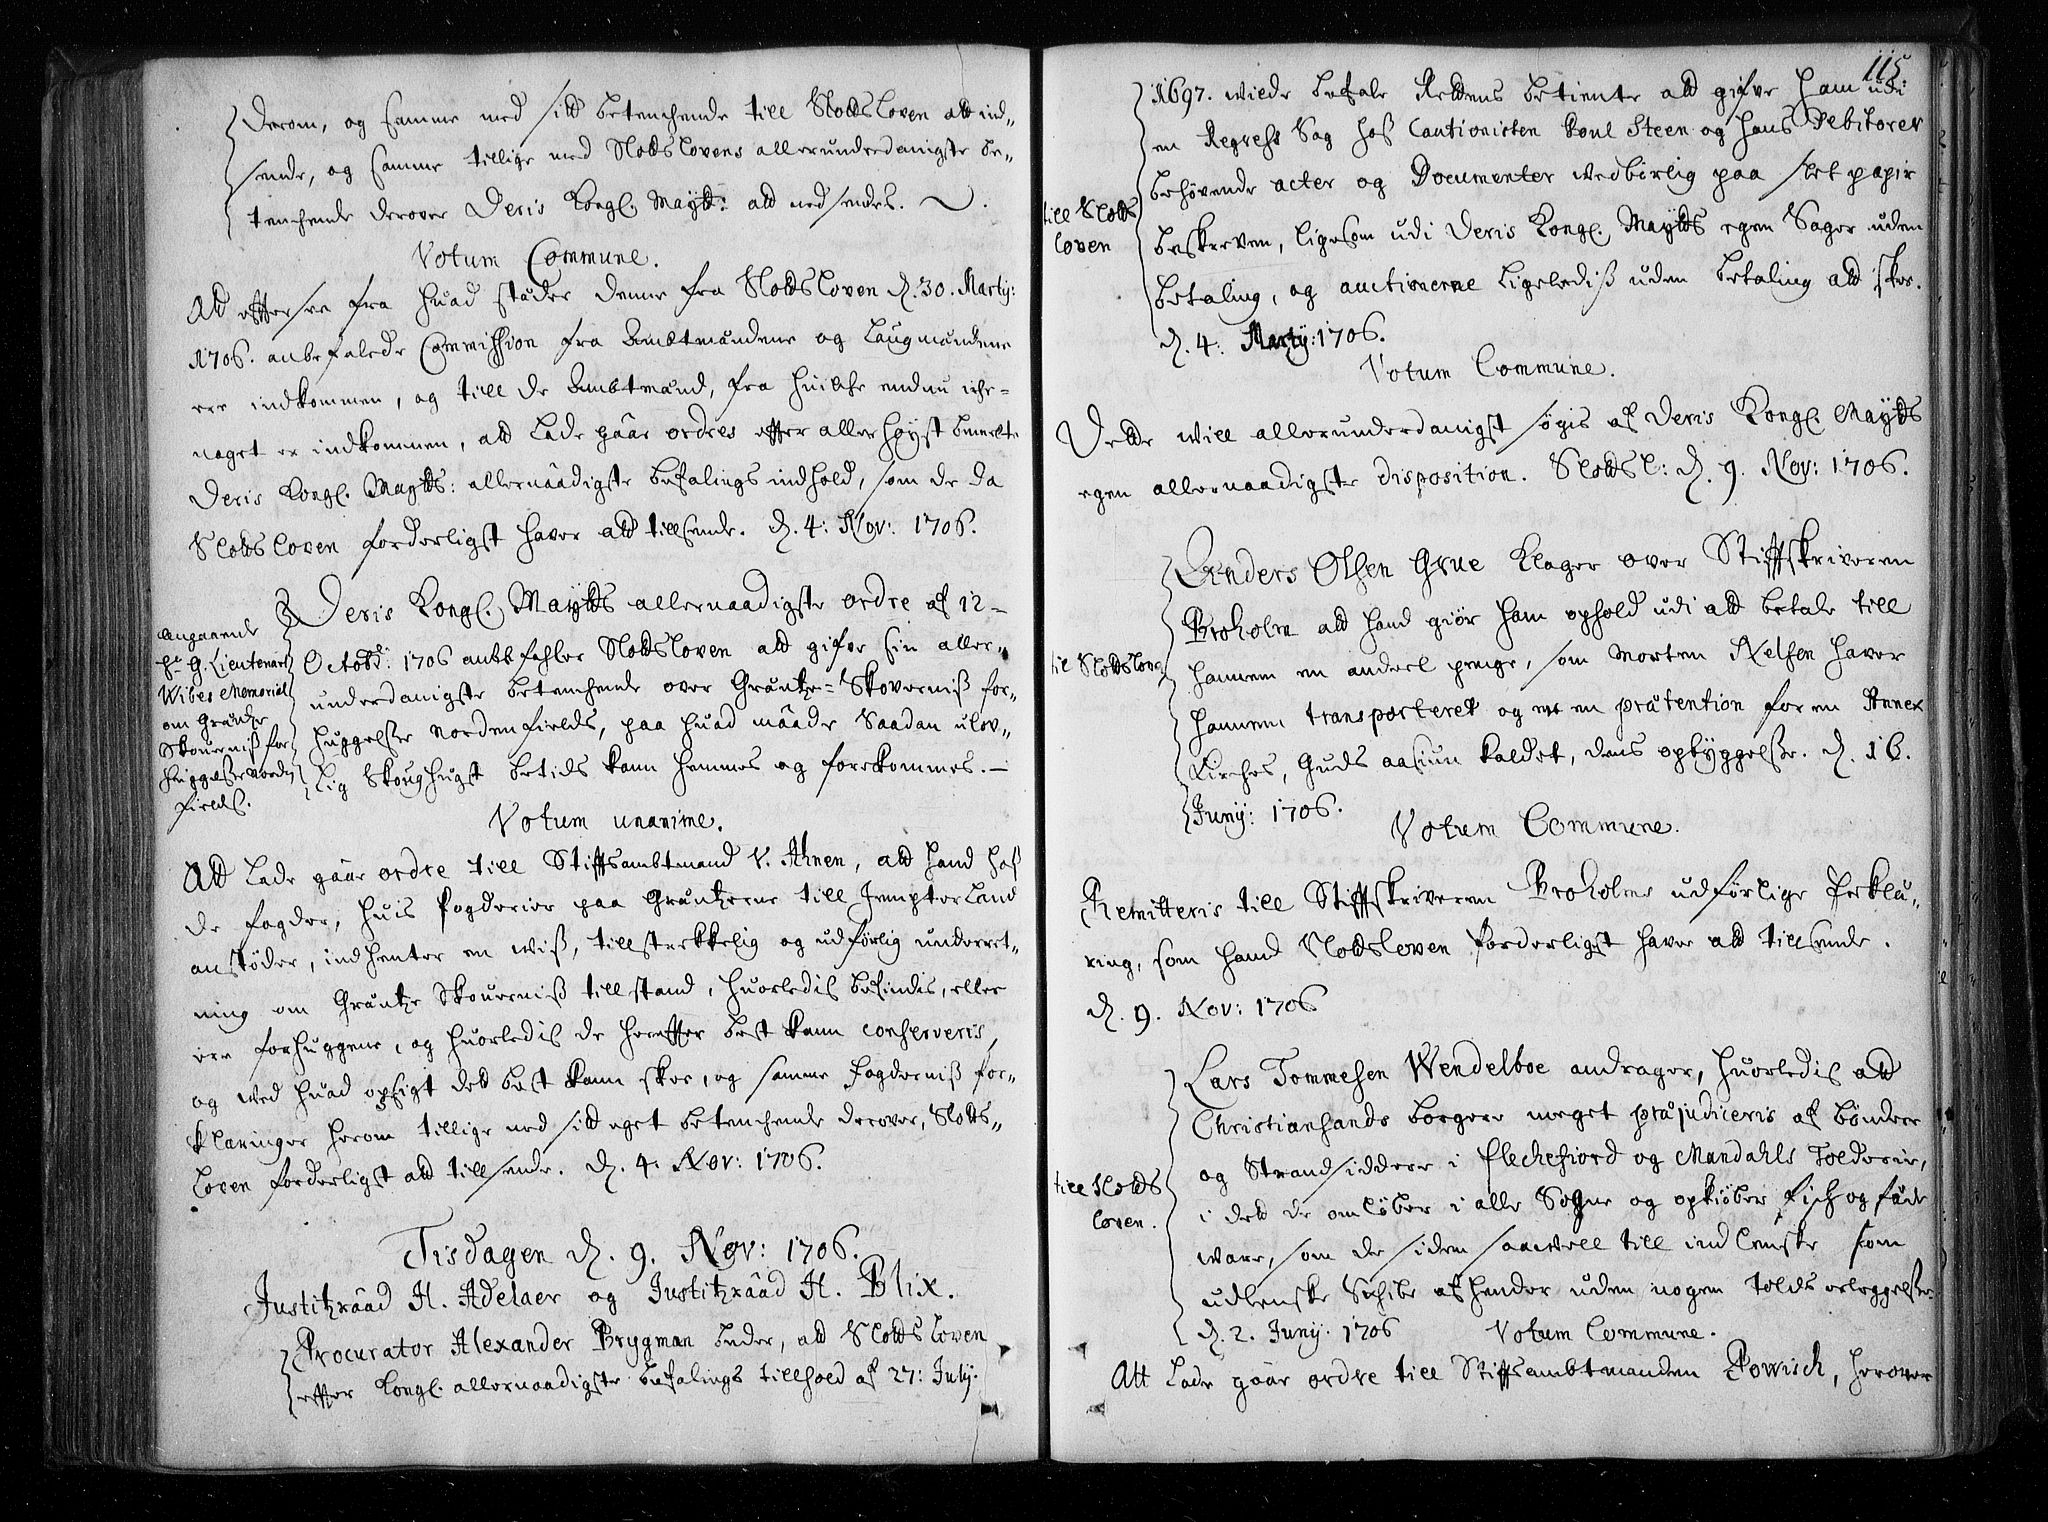 derom, og samme med sitt betenchende till Slottsloven att ind-
sende, og samme tillige med Slottslovens allerunderdanigste be-
tenchende derover Deris Kongl. Maytt: att nedsendes.
Votum Commune.
Att effterse fra huad stæder denne fra Slottsloven d. 30. Martij:
1706. anbefalede Commission fra Ambtmændene og Laugmændene
ere indkommen, og till de Ambtmænd, fra huilche endnu iche
noget er indkommen, att lade gaar ordres effter allerhøyst bemelte
Deris Kongl. Maytts: allernaadigste befalings indhold, som de da
Slottsloven forderligst haver att tillsende. d. 4: Nov: 1706.
Angaaende
Hr G. Lieutenant
Wibes Memorial
om Græntze
Skouernis for-
huggelse norden
fields.
Deris Kongl. Maytts allernaadigste ordre af 12
Octobr: 1706 anbefahler Slottsloven att gifve sin aller-
underdanigste betenchende over Græntze-Skovernis for-
huggelse nordenfields, paa huad maade saadan ulov-
lig Skoughugst betids kann hemmes og forekommes.
Votum unanime.
Att lade gaar ordre till Stifftsambtmand V. Ahnen, att hand hos
de fogder, huis fogderier paa Græntzerne till Jempterland
anstøder, indhenter en wis, tillstrekkelig og udførlig underret-
ning om Græntze Skouernis tillstand, huorledis befindes, eller
ere forhuggene, og huorledis de hereffter best kann conserveris,
og wed huad opsigt det best kann skee, og samme fogdernis for-
klaringer herom tillige med sitt eget betenchende derover, Slotts-
loven forderligst att tillsende. d. 4. Nov: 1706.
Tisdagen d. 9. Nov: 1706.
Justitzraad H. Adelaer og Justitzraad H. Blix.
Procurator Alexander Brygman beder, att Slottsloven
effter Kongl. allernaadigste befalings tillhold af 27: July.
115.
1697. wilde befale Rettens betiente att gifve ham udi
en Regress Sag hos Cautionisten Poul Steen og hans Debitorer
behøvende acter og Documenter wedbørlig paa slet papir
till Slotts
loven
beskreven, ligesom udi Deris Kongl. Maytts egen Sager uden
betaling, og auctionerne ligeledis uden betaling att skee.
d. 4: Martij: 1706.
Votum Commune.
Dette will allerunderdanigst søgis af Deris Kongl. Maytts
egen allernaadigste disposition. Slottsl: d. 9. Nov: 1706.
Anders Olsen Grue klager over Stifftskriveren
Broholm att hand giør ham ophold udi att betale till
til Slottslove
hannem en andeel penge, som Morten Nelsen haver
hannem transporteret og en prætention for en Annex
Kirches, Guds aasiun kaldet, dens opbyggelse. d. 16.
Junij: 1706.
Votum Commune.
Remitteris till Stifftskriveren Broholms udførlige Erklæ-
ring, som hand Slottsloven forderligst haver att tillsende.
d. 9. Nov: 1706
Lars Tommesen Wendelboe andrager, huorledis att
Christiansands borgere meget præjudiceris af bønder
og Strandsiddere i Flechefiord og Mandahls Tolderier,
till Slotts
loven.
i det de omløber i alle Sogne og opkiøber fisk og fæde
ware, som de siden saawell till indlenske som
udlenske Schibe afhender uden nogen tolds erleggelse.
d. 2. Junij. 1706
Votum Commune.
Att lade gaar ordre till Stifftsambtmanden Powisch, herover